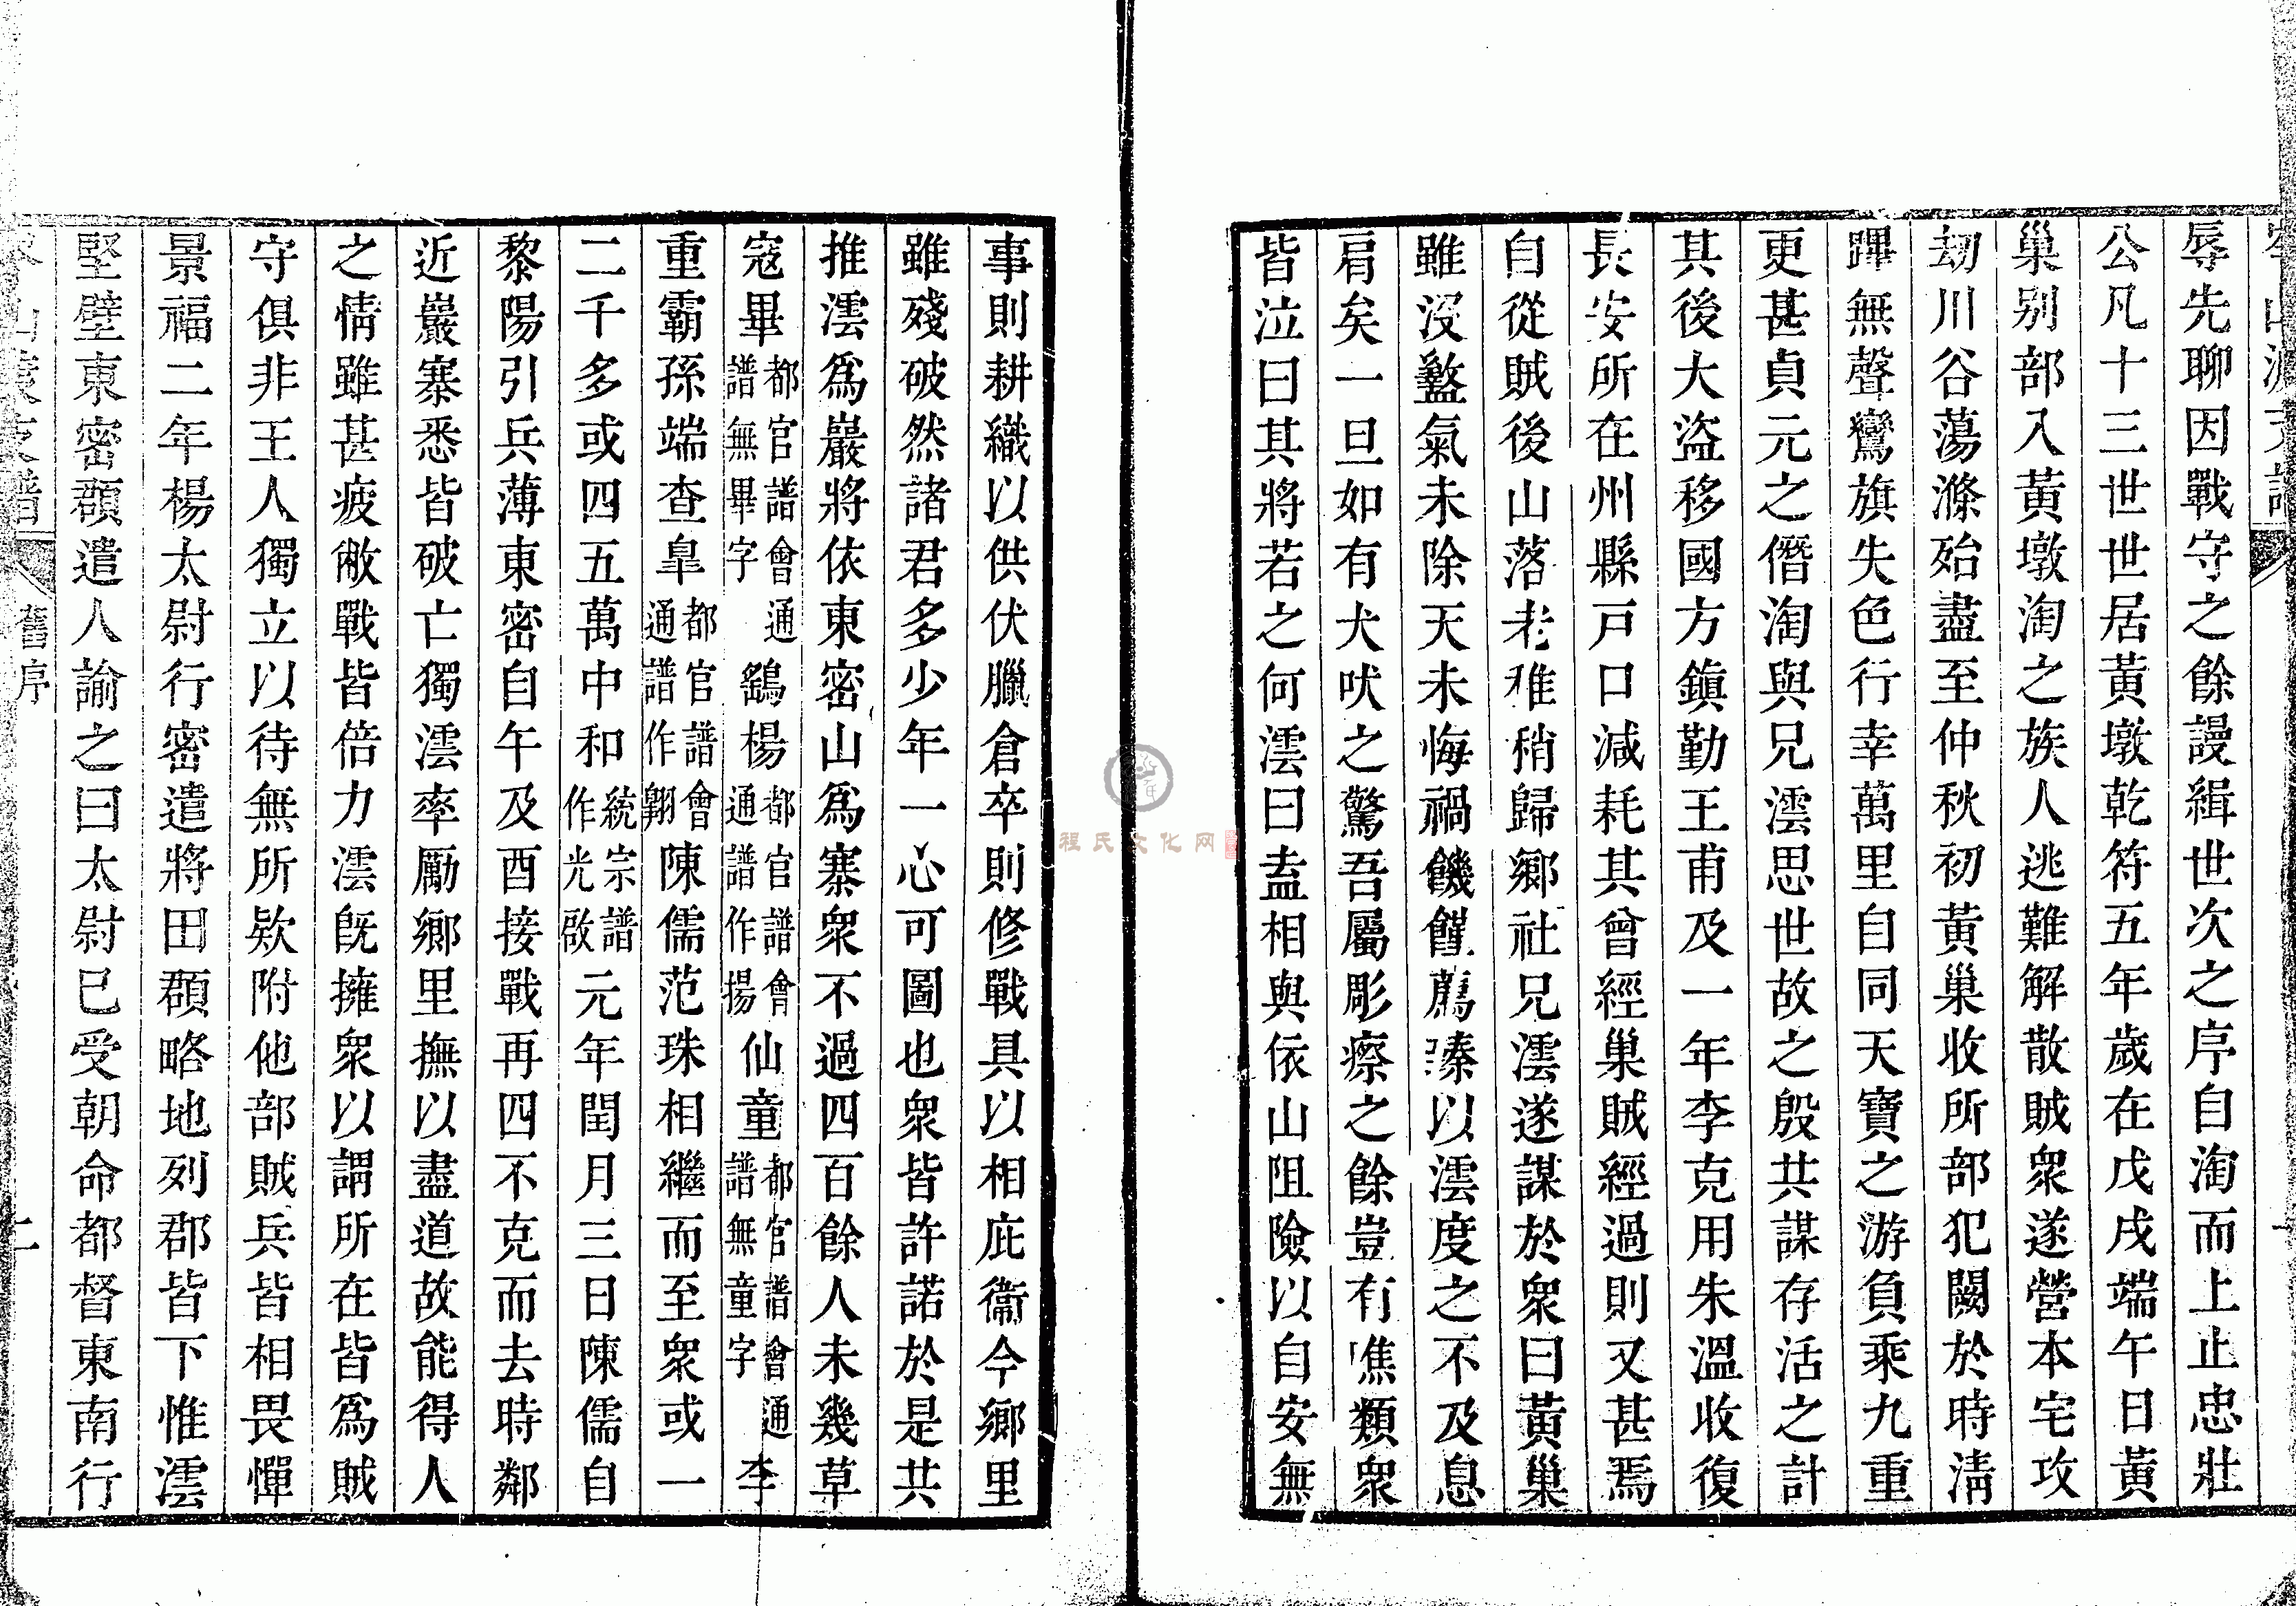 辱先聊因戰守之餘謾緝世次之序自淘而上止忠壯
公凡十三世世居黃墩乾符五年歲在戊戌端午日黃
巢别部入黃墩淘之族人逃難解散賊衆遂營本宅攻
刼川谷蕩滌殆盡至仲秋初黃巢收所部犯闕於時淸
蹕無聲鸞旗失色行幸萬里自同天寶之游負乘九重
更甚貞元之僭淘與兄澐思世故之殷共謀存活之計
其後大盜移國方鎮勤王甫及一年李克用朱溫收復
長安所在州縣戸口減耗其曾經巢賊經過則又甚焉
自從賊後山落老稚稍歸鄉社兄澐遂謀於衆曰黃巢
雖没盭氣未除天未悔禍饑饉薦臻以澐度之不及息
肩矣一旦如有犬吠之驚吾屬彫瘵之餘豈有噍類衆
皆泣曰其將若之何澐曰盍相與依山阻險以自安無
事則耕織以供伏臘倉卒則修戰具以相庇衞今鄉里
雖殘破然諸君多少年一心可圖也衆皆許諾於是共
推澐爲巖將依東密山爲寨衆不過四百餘人未幾草
寇畢都官譜會通譜無畢字鷂楊都官譜會通譜作揚仙童都官譜會通譜無童字李
重霸孫端查臯都官譜會通譜作翺陳儒范珠相繼而至衆或一
二千多或四五萬中和統宗譜作光啟元年閏月三日陳儒自
黎陽引兵薄東密自午及酉接戰再四不克而去時鄰
近巖寨悉皆破亡獨澐率勵鄉里撫以盡道故能得人
之情雖甚疲敝戰皆倍力澐旣擁衆以謂所在皆爲賊
守俱非王人獨立以待無所欵附他部賊兵皆相畏憚
景福二年楊太尉行密遣將田頵略地列郡皆下惟澐
堅壁東密頵遣人諭之曰太尉已受朝命都督東南行
舊序
二
程氏文化网